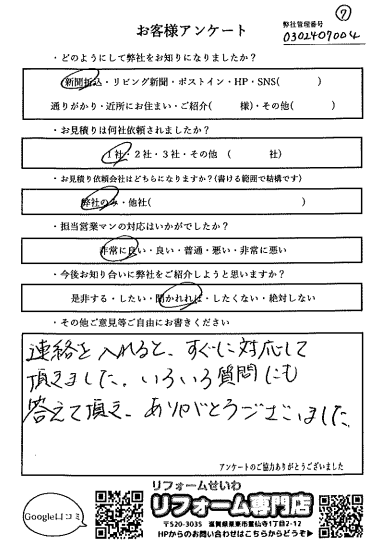 ⑦
お客様アンケート
弊社管理番号
0302407004
・どのようにして弊社をお知りになりましたか？
新聞折込・リビング新聞・ポストイン・HP・SNS( )
通りがかり・近所にお住まい・ご紹介( 様)・その他( )
・お見積りは何社依頼されましたか？
1社・2社・3社・その他 ( 社)
・お見積り依頼会社はどちらになりますか？(書ける範囲で結構です)
弊社のみ・他社( )
・担当営業マンの対応はいかがでしたか？
非常に良い・良い・普通・悪い・非常に悪い
・今後お知り合いに弊社をご紹介しようと思いますか？
是非する・したい・聞かれれば・したくない・絶対しない
・その他ご意見等ご自由にお書きください
連絡を入れると、すぐに対応して
頂きました。いろいろ質問にも
答えて頂き、ありがとうございました。
アンケートのご協力ありがとうございました
Google口コミ
リフォームせいわ
リフォーム専門店
〒520-3035 滋賀県栗東市霊仙寺1丁目2-12
HPからのお問い合わせはこちらからどうぞ▶